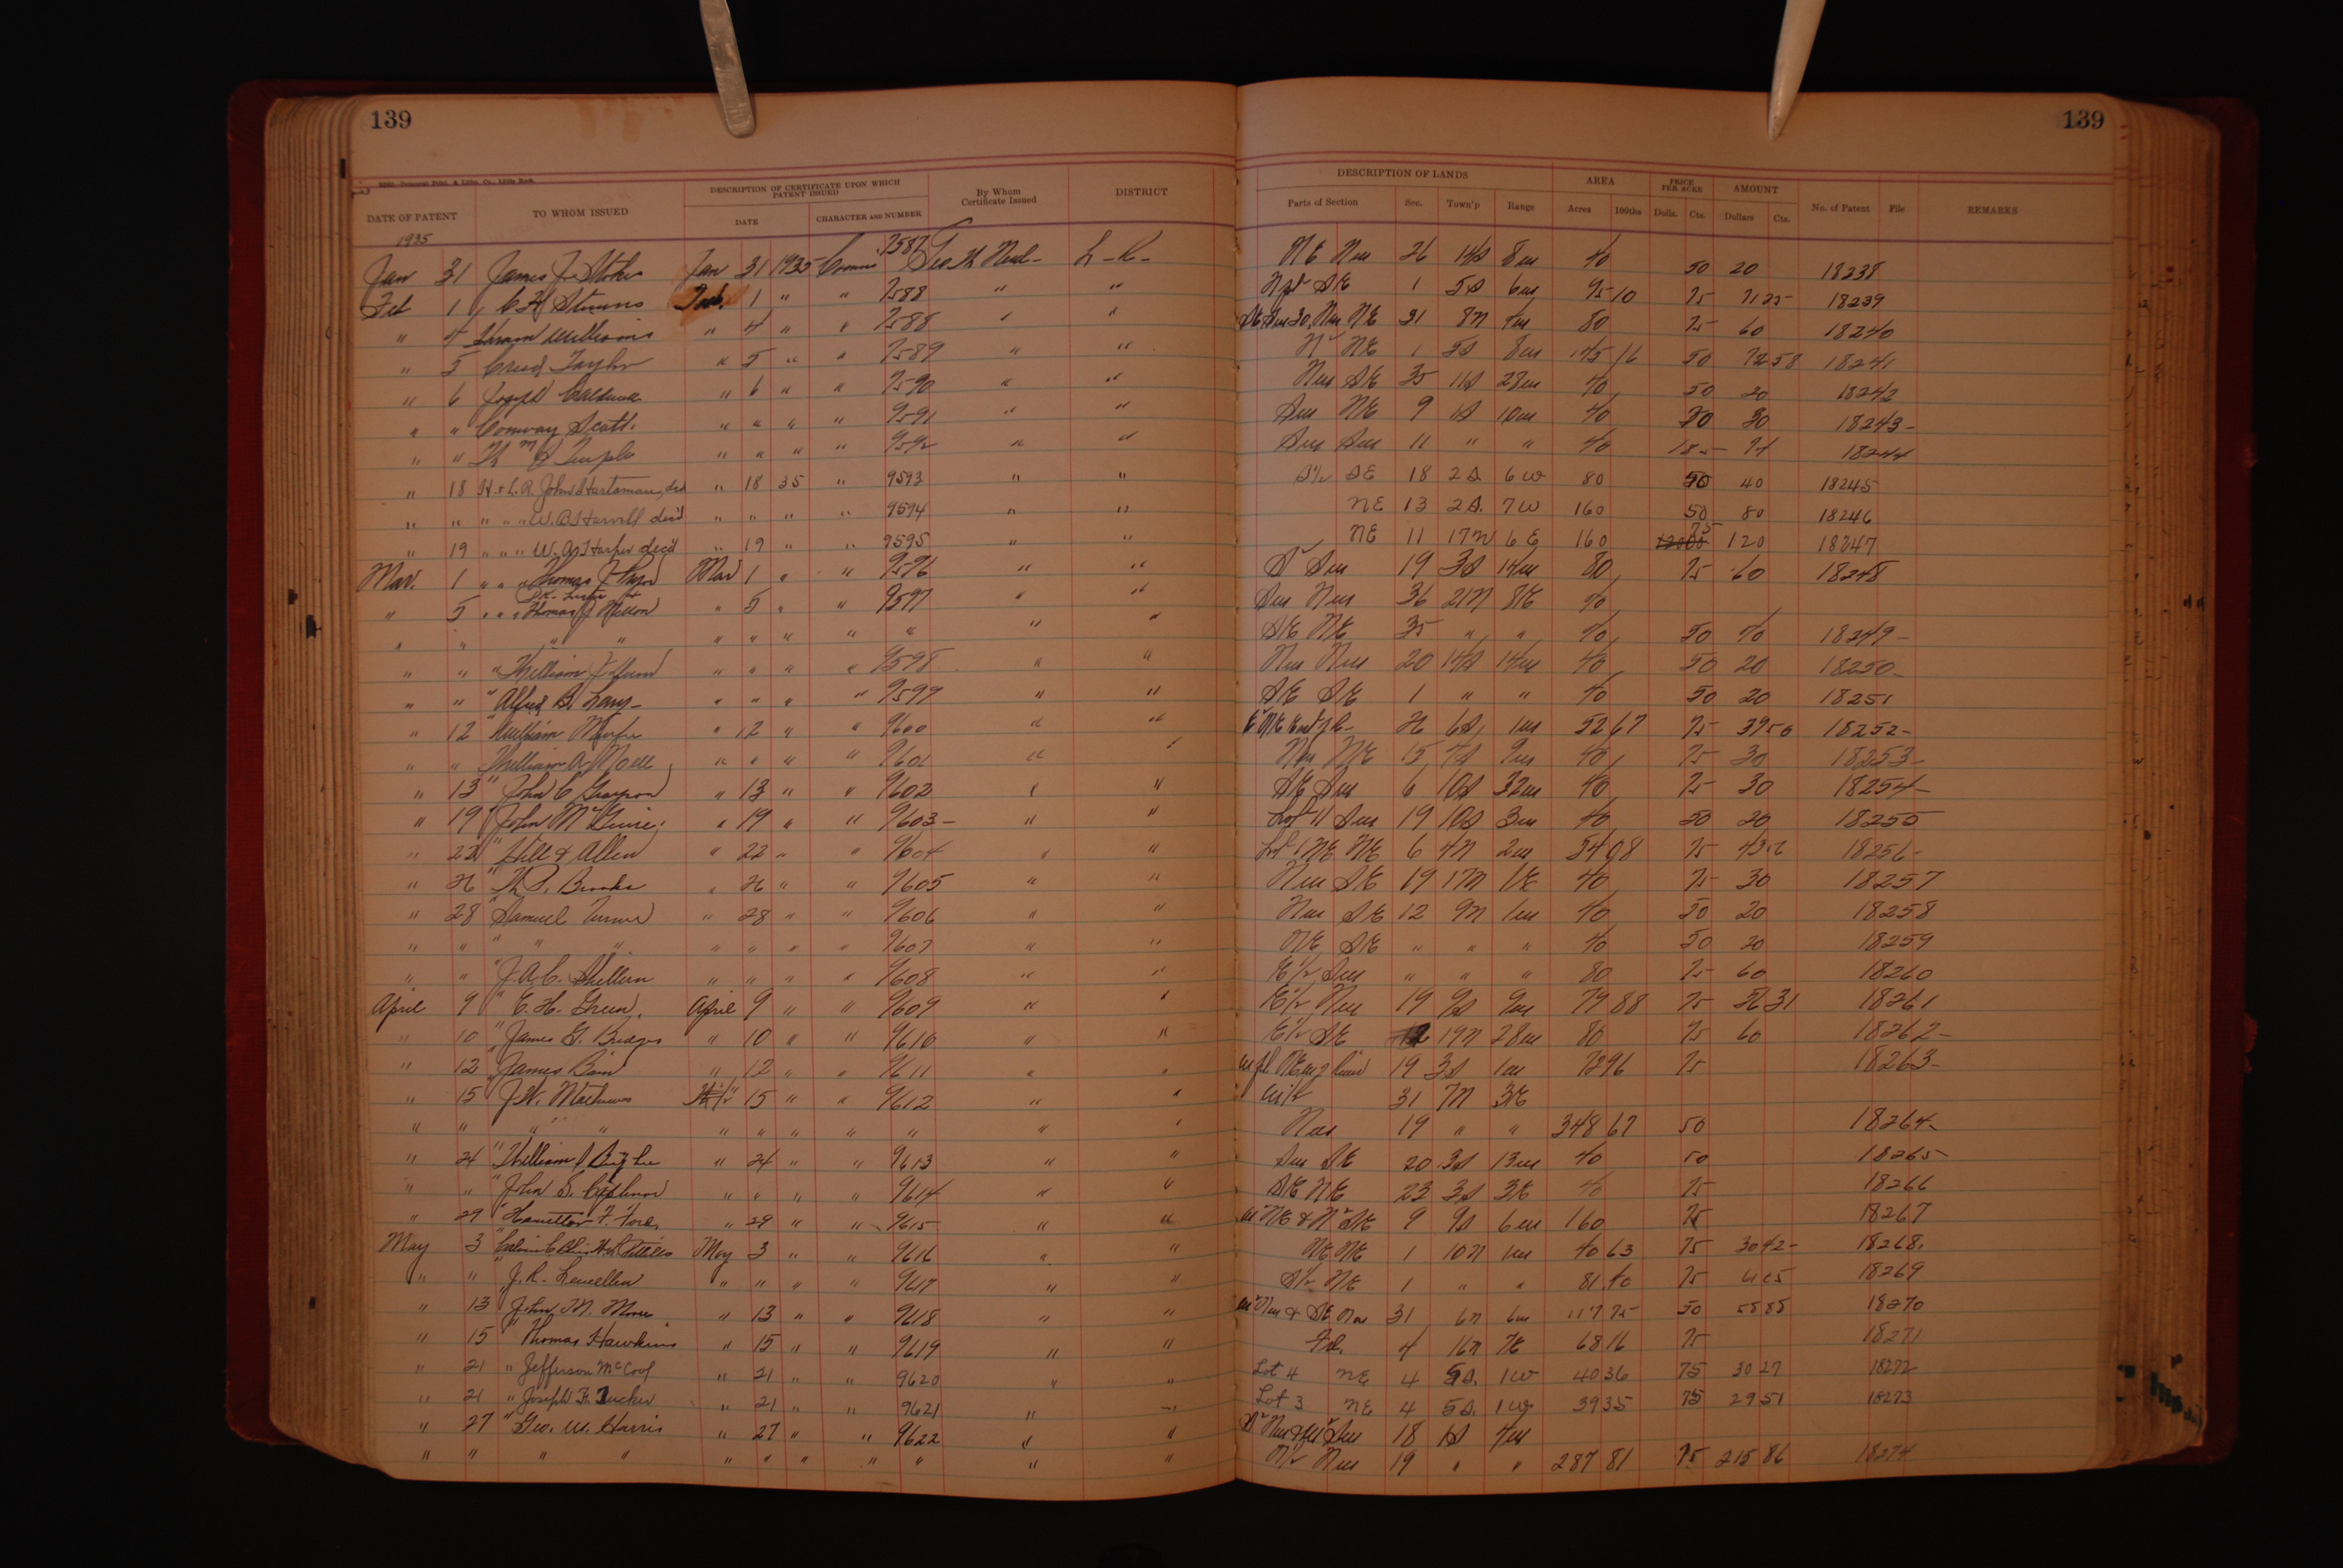 139 139
DESCRIPTION OF CERTIFICATE UPON WHICH PATENT ISSUED By Whom Certificate Issued DISTRICT DESCRIPTION OF LANDS AREA PRICE PER ACRE AMOUNT
DATE OF PATENT TO WHOM ISSUED DATE CHARACTER AND NUMBER Parts of Section Sec. Town'p Range Acres 100ths Dolls. Cts. Dollars Cts. No. of Patent File REMARKS
1935
Jan 31 James J. Stokes Jan 31 1935 9587 L-R- NE Nw 26 14S 8w 40 50 20 18238
Feb 1 Feb. 1 " " 9588 " " SE 1 5S 6w 95 10 75 71 25 18239
" 4 Hiram Williams " 4 " " 9588 " " NE 31 8N 80 75 60 18240
" 5 Creed Taylor " 5 " " 9589 " " NE 1 5S 8w 145 16 50 72 58 18241
" 6 Joseph " 6 " " 9590 " " Nw SE 35 11S 28w 40 50 20 18242
" " Conway Scott. " " " " 9591 " " Sw NE 9 1S 10w 40 30 18243-
" " " " " " 9592 " " Sw Sw 11 " " 40 18244
" 18 H. & L. R. John Hartsman, decd " 18 35 " 9593 " " S½ SE 18 2S. 6W 80 50 40 18245
" " " " " W.B. Harvill dec'd " " " " 9594 " " NE 13 2S. 7W 160 50 80 18246
" 19 " " " W. A. Harper dec'd " 19 " " 9595 " " NE 11 17N 6E 160 75 120 18247
Mar. 1 " " " Thomas Mar 1 " " 9596 " " Sw 19 3S 14w 80 75 60 18248
" 5 " " " Thomas J " 5 " " 9597 " " Sw Nw 36 21N 8E 40
" " " " " " " " " " " SE NE 35 " " 40 50 40 18249-
" " " William " " " " 9598 " " Nw Nw 20 14S 14w 40 50 20 18250-
" " " Alfred B. Lary- " " " " 9599 " " SE SE 1 " " 40 50 20 18251
" 12 " William " 12 " " 9600 " " 26 6S 1w 52 67 75 39 50 18252-
" " " William A. Noell " " " " 9601 " " Nw NE 15 9w 40 75 30 18253-
" 13 " John C Grayson " 13 " " 9602 " " SE Sw 6 10S 32w 40 75 30 18254-
" 19 " John McGuire. " 19 " " 9603- " " Lot 11 Sw 19 10S 3w 40 50 20 18255
" 22 " Hill & Allen " 22 " " 9604 " " Lot 1 NE NE 6 4N 2w 54 08 75 18256-
" 26 " Brooks " 26 " " 9605 " " Nw SE 19 17N 1E 40 75 30 18257
" 28 " Samuel Turner " 28 " " 9606 " " Nw SE 12 9N 1w 40 50 20 18258
" " " " " " " " " 9607 " " NE SE " " " 40 50 20 18259
" " " J.A.C. " " " " 9608 " " E½ Sw " " " 80 75 60 18260
April 9 " E. H. Green. April 9 " " 9609 " " E½ Nw 19 9S 9w 79 88 75 31 18261
" 10 " James G. Bridges " 10 " " 9610 " " E½ SE 12 19N 28w 80 75 60 18262-
" 12 " James Bain " 12 " " 9611 " " 19 3S 1w 72 96 75 18263-
" 15 " J.W. Mathews 15 " " 9612 " " W½ 31 7N 3E
" " " " " " " " " " " " Nw 19 " " 348 67 50 18264-
" 24 " William " 24 " " 9613 " " Sw SE 20 3S 13w 40 50 18265
" " " John S. " " " " 9614 " " SE NE 23 3S 3E 40 75 18266
" 29 " Hamilton F. Ford " 29 " " 9615 " " 9 9S 6w 160 75 18267
May 3 May 3 " " 9616 " " NE NE 1 10N 1w 40 63 75 30 42- 18268.
" " " J.R. Lewellen " " " " 9617 " " S½ NE 1 " " 81.40 75 61 05 18269
" 13 " John M. Moore " 13 " " 9618 " " 31 6N 6w 117 75 50 58 88 18270
" 15 " Thomas Hawkins " 15 " " 9619 " " 4 16N 7E 68 16 75 18271
" 21 " Jefferson McCool " 21 " " 9620 " " Lot 4 NE 4 5S. 1W 40 36 75 30 27 18272
" 21 " Joseph H. Tucker " 21 " " 9621 " " Lot 3 NE 4 5S. 1W 39 35 75 29 51 18273
" 27 " Geo. W. Harris " 27 " " 9622 " " 18 1S
" " " " " " " " " " " " N½ Nw 19 " " 287 81 75 215 86 18274